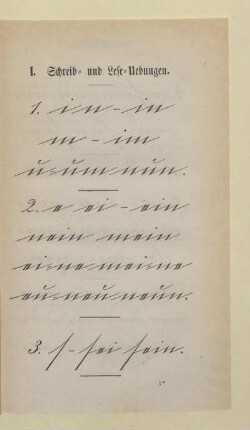 I. Schreib- und Lese-Uebungen.
1. i-n-in
m-im
u-um-nun.
2. e ei-ein
nein mein
ei-ne mei-ne
eu-neu neun.
3. s-sei sein.